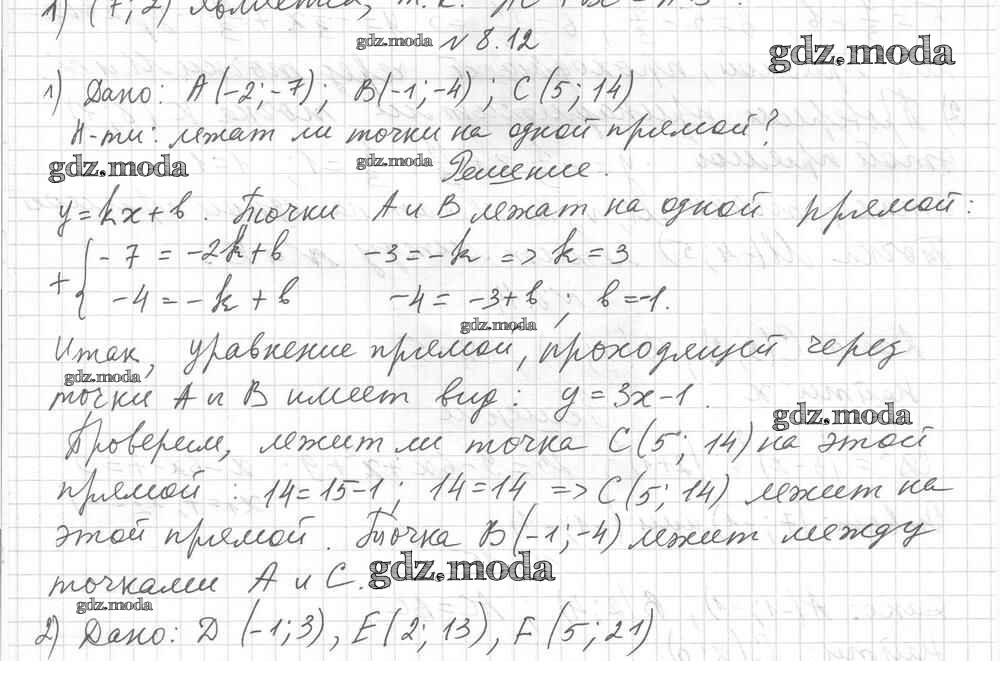 1) (7; 2) является, т.к.
gdz.moda № 8.12 gdz.moda
1) Дано: A(-2; -7); B(-1; -4); C(5; 14)
Н-ти: лежат ли точки на одной прямой?
gdz.moda gdz.moda Решение.
y=kx+b. Точки A и B лежат на одной прямой:
+{ -7 = -2k+b -3=-k => k=3
-4 = -k+b -4 = -3+b; b=-1.
gdz.moda
Итак, уравнение прямой, проходящей через
gdz.moda
точки A и B имеет вид: y=3x-1.
gdz.moda
Проверим, лежит ли точка C(5; 14) на этой
прямой: 14=15-1; 14=14 => C(5; 14) лежит на
этой прямой. Точка B(-1; -4) лежит между
точками A и C. gdz.moda
gdz.moda
2) Дано: D (-1; 3), E(2; 13), F(5; 21)